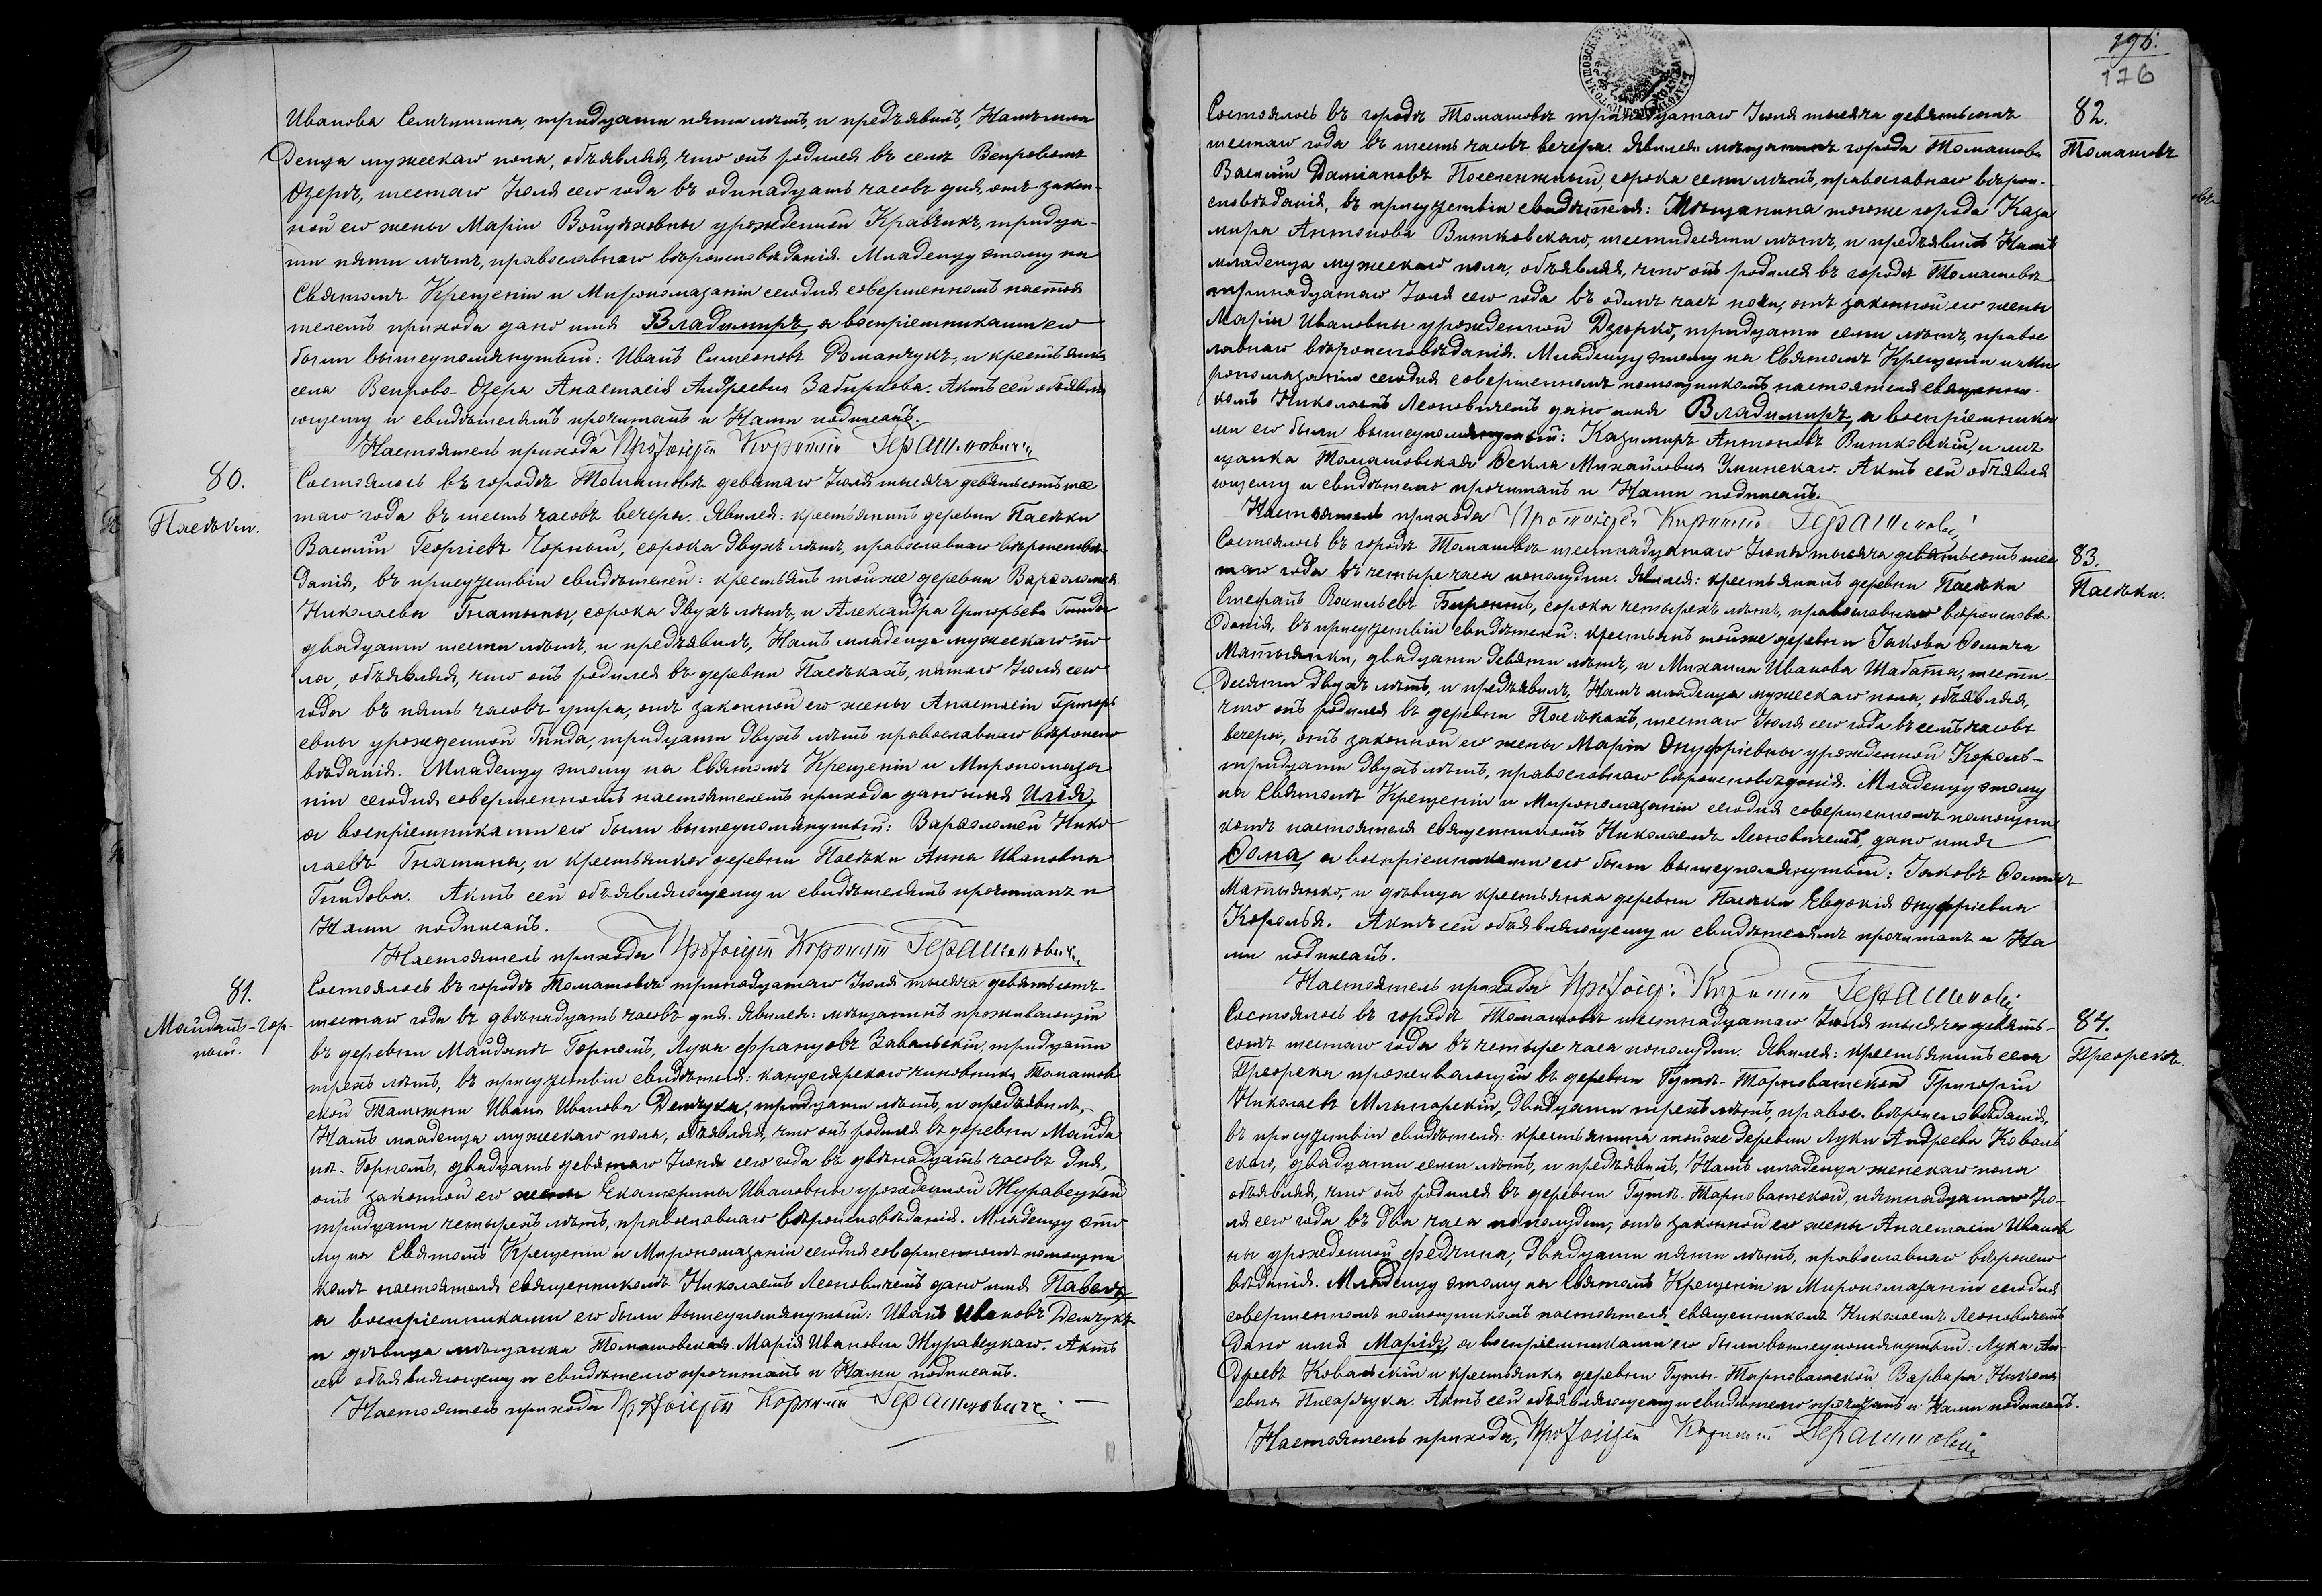 Иванова Семчишина, тридцати пяти лѣтъ, и предъявилъ, Намъ мла
денца мужескаго пола, объявляя, что онъ родился въ селѣ Вепровомъ
Озерѣ, шестаго Іюля сего года въ одинадцать часовъ дня, отъ закон-
ной его жены Маріи Войцѣховны урожденной Кравчикъ, тридца-
ти пяти лѣтъ, православнаго вѣроисповѣданія. Младенцу этому на
Святомъ Крещеніи и Миропомазаніи сегодня совершенномъ настоя
телемъ прихода дано имя Владимиръ, а воспріемниками его
были вышеупомянутый: Иванъ Симеоновъ Романчукъ, и крестьянка
села Вепрово-Озера Анастасія Андреевна Забиркова. Актъ сей объявля
ющему и свидѣтелямъ прочитанъ и Нами подписанъ.
Настоятель прихода Протоіерей Корнилій Герашиновичъ
80.
Пасѣки.
Состоялось въ городѣ Томашовѣ девятаго Іюля тысяча девятьсотъ шес
таго года въ шесть часовъ вечера. Явился: крестьянинъ деревни Пасѣки
Василій Георгіевъ Чорный, сорока двухъ лѣтъ, православнаго вѣроисповѣ-
данія, въ присутствіи свидѣтелей: крестьянъ тойже деревни Варѳоломея
Николаева Гнатыны, сорока двухъ лѣтъ, и Александра Григорьева Гнида
двадцати шести лѣтъ, и предъявилъ, Намъ младенца мужескаго по
ла, объявляя, что онъ родился въ деревни Пасѣкахъ, пятаго Іюля сего
года въ пять часовъ утра, отъ законной его жены Анастасіи Григорь
евны урожденной Гнида, тридцати двухъ лѣтъ православнаго вѣроиспо
вѣданія. Младенцу этому на Святомъ Крещеніи и Миропомаза
ніи сегодня совершенномъ настоятелемъ прихода дано имя Илія,
а воспріемниками его были вышеупомянутый: Варѳоломей Нико
лаевъ Гнатына, и крестьянка деревни Пасѣки Анна Ивановна
Гнидова. Актъ сей объявляющему и свидѣтелямъ прочитанъ и
Нами подписанъ.
Настоятель прихода Протоіерей Корнилій Герашиновичъ
81.
Майданъ-Гор-
ный.
Состоялось въ городѣ Томашовѣ тринадцатаго Іюля тысяча девятьсотъ
шестаго года въ двѣнадцать часовъ дня. Явился: мѣщанинъ проживающій
въ деревни Майданѣ Горномъ, Лука Францовъ Завальскій, тридцати
трехъ лѣтъ, въ присутствіи свидѣтеля: канцелярскаго чиновника Томашов
ской Таможни Ивана Иванова Демчука, тридцати лѣтъ, и предъявилъ,
Намъ младенца мужескаго пола, объявляя, что онъ родился въ деревни Майда
нѣ-Горномъ, двадцать девятаго Іюня сего года въ двѣнадцать часовъ дня,
отъ законной его жены Екатерины Ивановны урожденной Журавецкой
тридцати четырехъ лѣтъ, православнаго вѣроисповѣданія. Младенцу это
му на Святомъ Крещеніи и Миропомазаніи сегодня совершенномъ помощни
комъ настоятеля священникомъ Николаемъ Леоновичемъ дано имя Павелъ,
а воспріемниками его были вышеупомянутый: Иванъ Ивановъ Демчукъ
и дѣвица мѣщанка Томашовская Марія Ивановна Журавецкаго. Актъ
сей объявляющему и свидѣтелю прочитанъ и Нами подписанъ.
Настоятель прихода Протоіерей Корнилій Герашиновичъ
196.
176
82.
Томашовъ
Состоялось въ городѣ Томашовѣ тринадцатаго Іюля тысяча девятьсотъ
шестаго года въ шесть часовъ вечера. Явился: мѣщанинъ города Томашова
Василій Даміановъ сорока семи лѣтъ, православнаго вѣрои-
сповѣданія, въ присутствіи свидѣтеля: Мѣщанина тогоже города Кази
мира Антонова Витковскаго, шестидесяти лѣтъ, и предъявилъ Намъ
младенца мужескаго пола, объявляя, что онъ родился въ городѣ Томашовѣ
тринадцатаго Іюля сего года въ одинъ часъ ночи, отъ законной его жены
Маріи Ивановны урожденной Дзюрко, тридцати семи лѣтъ, правос
лавнаго вѣроисповѣданія. Младенцу этому на Святомъ Крещеніи и Ми
ропомазаніи сегодня совершенномъ помощникомъ настоятеля священни-
комъ Николаемъ Леоновичемъ дано имя Владимиръ, а воспріемника
ми его были вышеупомянутый: Казимиръ Антоновъ Витковскій, и мѣ
щанка Томашовская Ѳекла Михайловна Актъ сей объявля
ющему и свидѣтелю прочитанъ и Нами подписанъ.
Настоятель прихода Протоіерей Корнилій Герашиновичъ
83.
Пасѣки.
Состоялось въ городѣ Томашовѣ шестнадцатаго Іюля тысяча девятьсотъ шес
таго года въ четыре часа пополудни. Явился: крестьянинъ деревни Пасѣки
Стефанъ Васильевъ сорока четырехъ лѣтъ, православнаго вѣроисповѣ
данія, въ присутствіи свидѣтелей: крестьянъ тойже деревни Іакова Ѳомича
Матыянки, двадцати девяти лѣтъ, и Михаила Иванова Шабата, шести-
десяти двухъ лѣтъ, и предъявилъ, Намъ младенца мужескаго пола, объявляя,
что онъ родился въ деревни Пасѣкахъ, шестаго Іюля сего года въ семь часовъ
вечера, отъ законной его жены Маріи Онуфріевны урожденной Король-
тридцати двухъ лѣтъ, православнаго вѣроисповѣданія. Младенцу этому
на Святомъ Крещеніи и Миропомазаніи сегодня совершенномъ помощни
комъ настоятеля священникомъ Николаемъ Леоновичемъ, дано имя
Ѳома, а воспріемниками его были вышеупомянутый: Іаковъ Ѳомичъ
Матыянко, и дѣвица крестьянка деревни Пасѣки Евдокія Онуфріевна
Короля. Актъ сей объявляющему и свидѣтелямъ прочитанъ и На
ми подписанъ.
Настоятель прихода Протоіерей Корнилій Герашиновичъ
84.
Преорскъ.
Состоялось въ городѣ Томашовѣ шестнадцатаго Іюля тысяча девять-
сотъ шестаго года въ четыре часа пополудни. Явился: крестьянинъ села
Преорска проживающій въ деревни Гутѣ-Тарноватской Григорій
Николаевъ двадцати трехъ лѣтъ, правос. вѣроисповѣданія,
въ присутствіи свидѣтеля: крестьянина тойже деревни Луки Андреева Коваль
скаго, двадцати семи лѣтъ, и предъявилъ, Намъ младенца женскаго пола
объявляя, что онъ родился въ деревни Гутѣ-Тарноватской, пятнадцатаго Ію-
ля сего года въ два часа пополудни, отъ законной его жены Анастасіи Иванов
ны урожденной Федчина, двадцати пяти лѣтъ, православнаго вѣроиспо
вѣданія. Младенцу этому на Святомъ Крещеніи и Миропомазаніи сегодня
совершенномъ помощникомъ настоятеля священникомъ Николаемъ Леоновичемъ
дано имя Марія, а воспріемниками его были вышеупомянутый: Лука Ан-
дреевъ Ковальскій и крестьянка деревни Гуты-Тарноватской Варвара Никола
евна Писарчука. Актъ сей объявляющему и свидѣтелю прочитанъ и Нами подписанъ.
Настоятель прихода, Протоіерей Корнилій Герашиновичъ